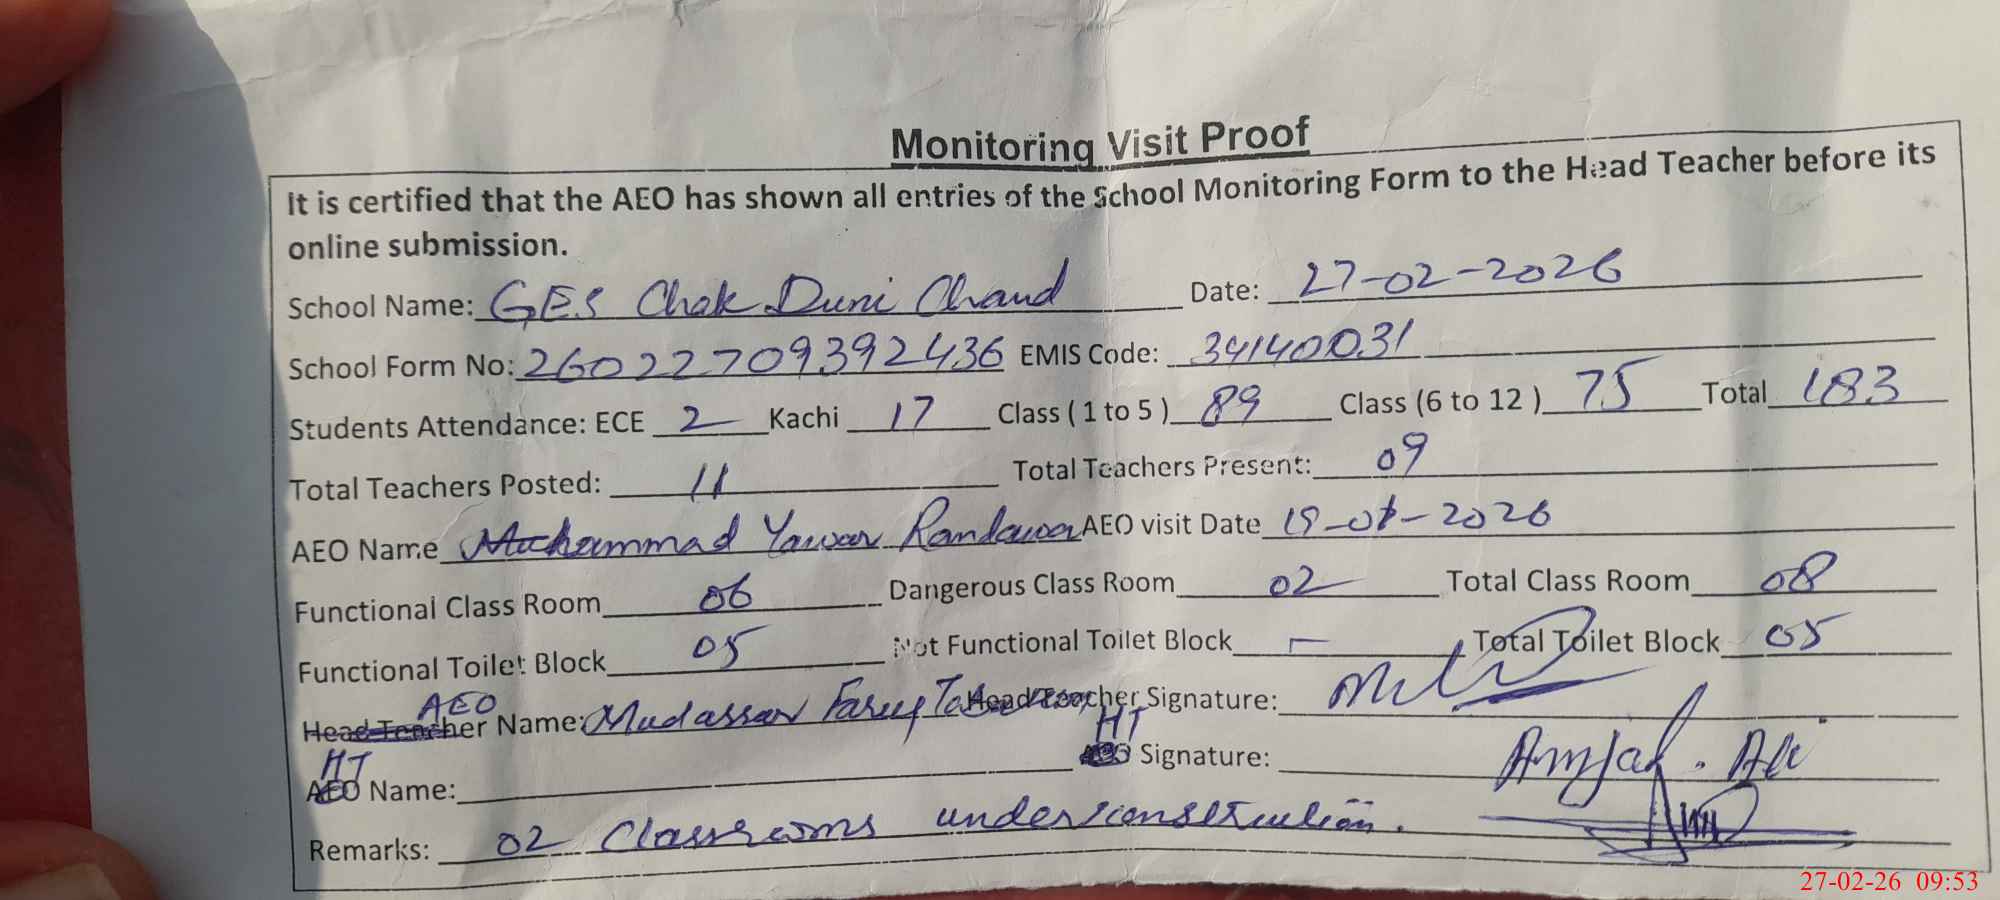 Monitoring Visit Proof
It is certified that the AEO has shown all entries of the School Monitoring Form to the Head Teacher before its
online submission.
School Name: GES Chak Duni Chand Date: 27-02-2026
School Form No: 26022709392436 EMIS Code: 34140031
Students Attendance: ECE 2 Kachi 17 Class ( 1 to 5 ) 89 Class (6 to 12 ) 75 Total 183
Total Teachers Posted: 11 Total Teachers Present: 09
AEO Name Muhammad Yawar Randawa AEO visit Date 19-01-2026
Functional Class Room 06 Dangerous Class Room 02 Total Class Room 08
Functional Toilet Block 05 Not Functional Toilet Block - Total Toilet Block 05
AEO
Head Teacher Name: Mudassar Faruq Head Teacher Signature:
HT HT
AEO Name: Signature: Amjad. Ali
Remarks: 02 Classrooms underconstruction.
27-02-26 09:53